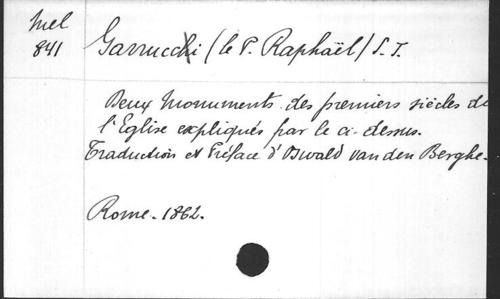 Mel
841
Garrucchi (le P. Raphaël) S. J.
Deux Monuments des premiers siècles de
l'Eglise expliqués par le ci-dessus.
Traduction et Préface d'Oswald van den Berghe.
Rome. 1862.